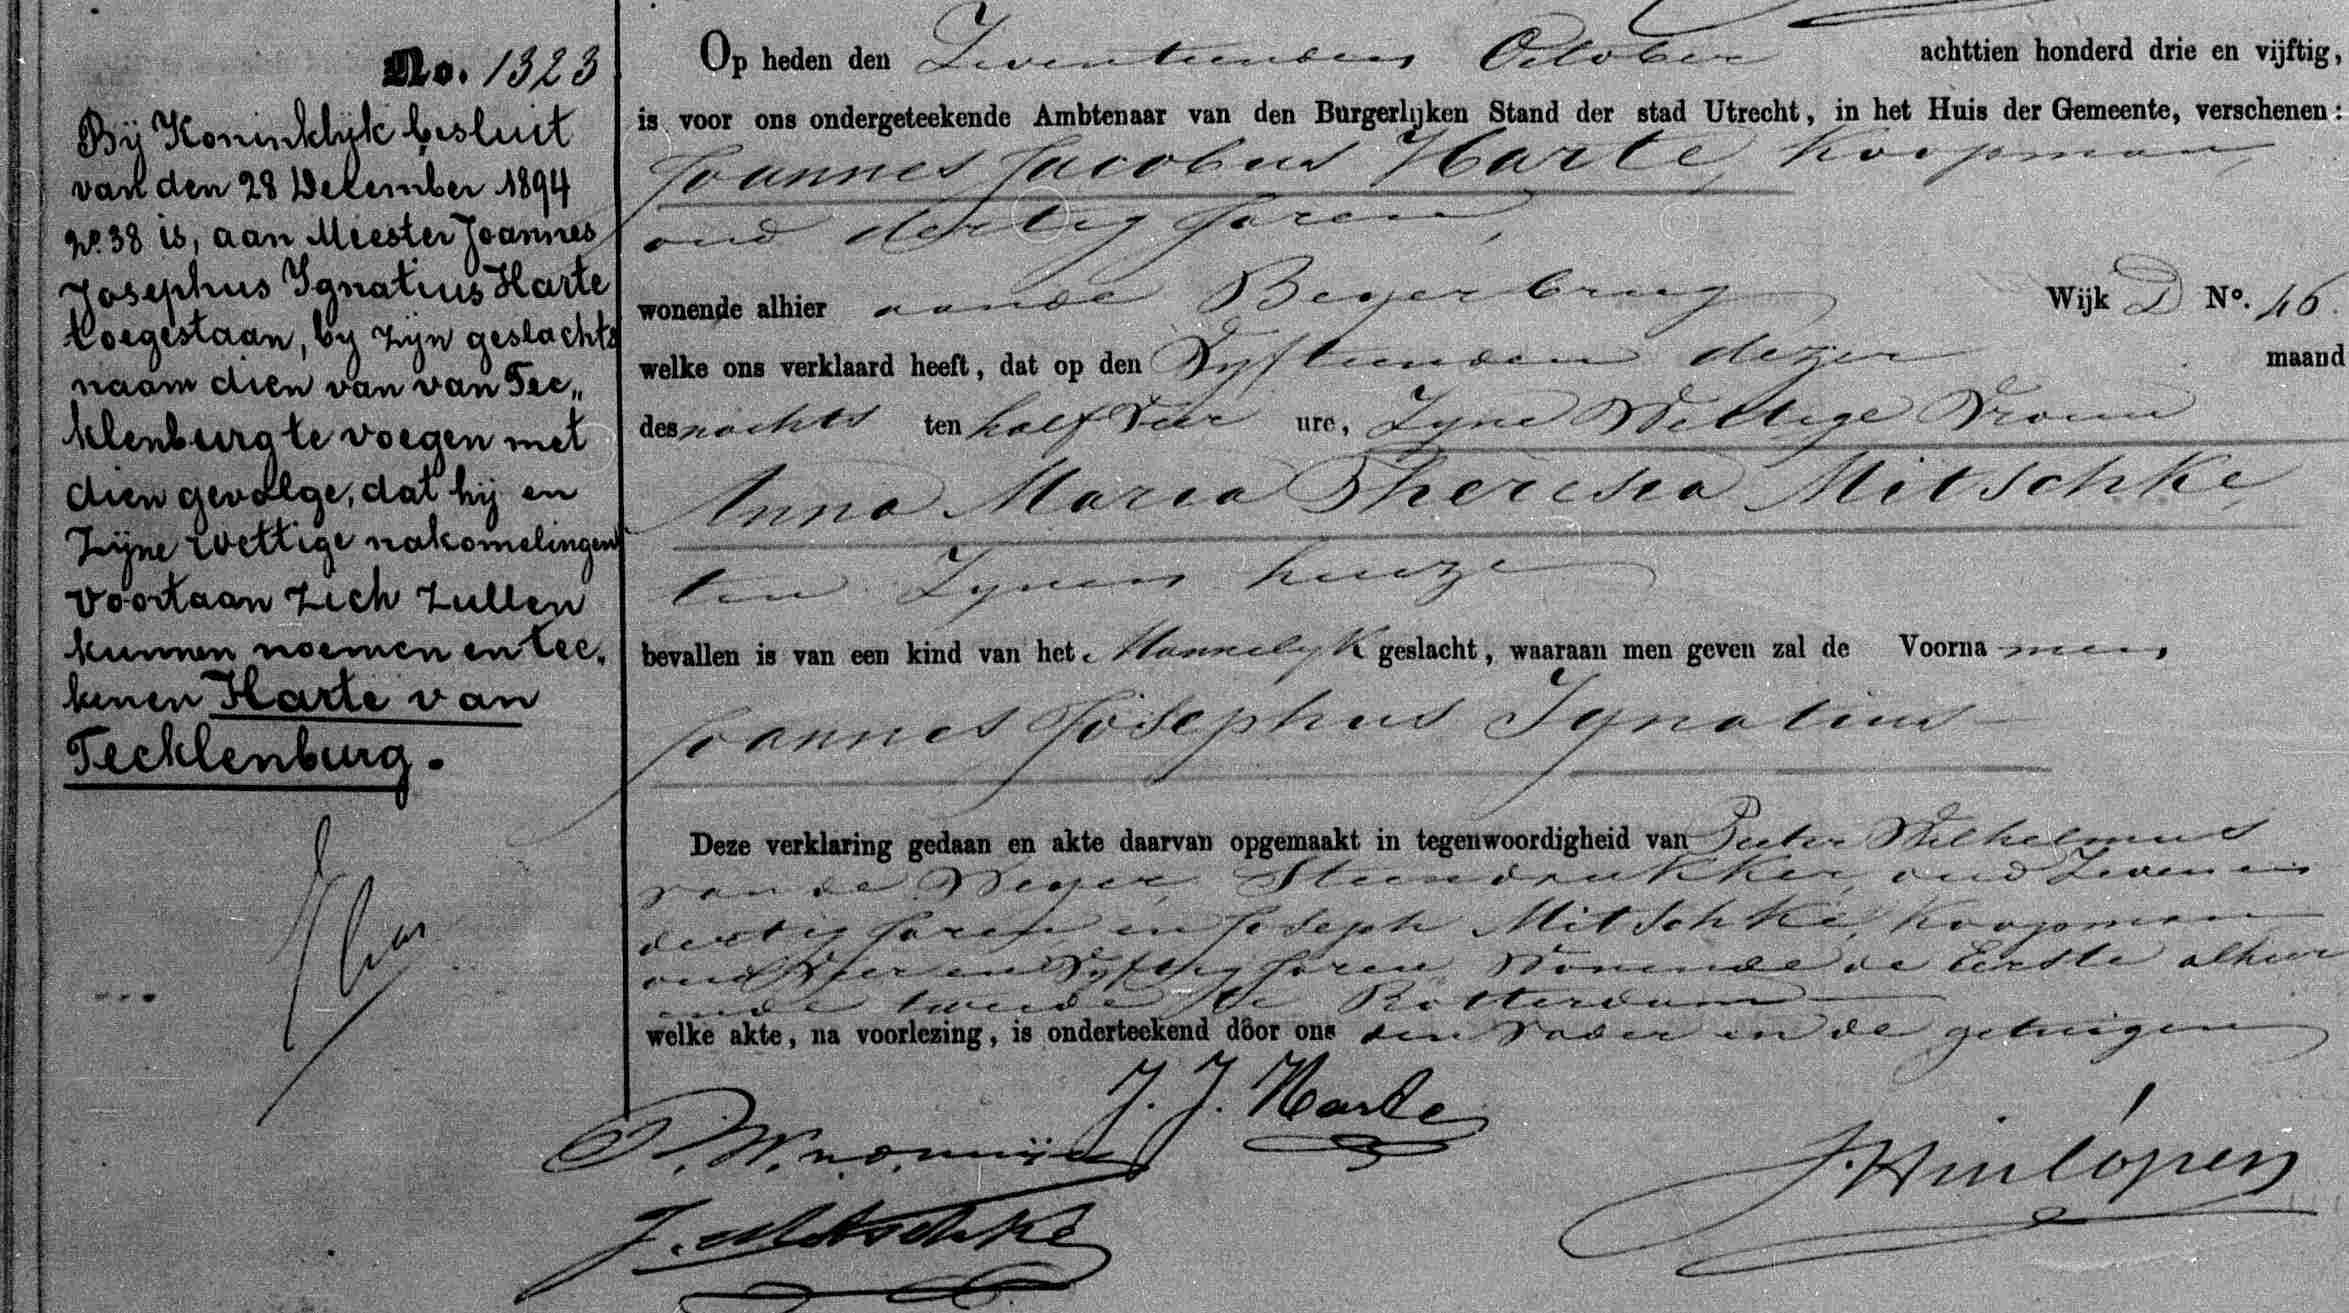 No. 1323
Bij Koninklijk besluit
van den 28 December 1894
No. 38 is, aan Meester Joannes
Josephus Ignatius Harte
toegestaan, by zijn geslachts
naam dien van van Tec„
klenburg te voegen met
dien gevolge, dat hij en
zijne wettige nakomelingen
voortaan zich zullen
kunnen noemen en tee„
kenen Harte van
Tecklenburg.
Op heden den Zeventienden October achttien honderd drie en vijftig,
is voor ons ondergeteekende Ambtenaar van den Burgerlijken Stand der stad Utrecht, in het Huis der Gemeente, verschenen:
Joannes Jacobus Harte, Koopman,
oud dertig Jaren,
wonende alhier aande Beyerbrug Wijk D No. 46.
welke ons verklaard heeft, dat op den Vyftienden dezer maand
des nachts ten half vier ure, Zyne Wettige Vrouw
Anna Maria Theresia Mitschke,
ten Zynen huize
bevallen is van een kind van het Mannelyk geslacht, waaraan men geven zal de Voornamen,
Joannes Josephus Ignatius
Deze verklaring gedaan en akte daarvan opgemaakt in tegenwoordigheid van Pieter Wilhelmus
van de Weyer, Steendrukker, oud Zeven en
dertig Jaren, en Joseph Mitschke, Koopman
oud Vier en Vyftig Jaren, Wonende de Eerste alhier
ende tweede te Rotterdam
welke akte, na voorlezing, is onderteekend door ons den Vader en de getuigen
J. J. Harte
P. W. v. d. Weijer
J. Mitschke
J. Hinlópen